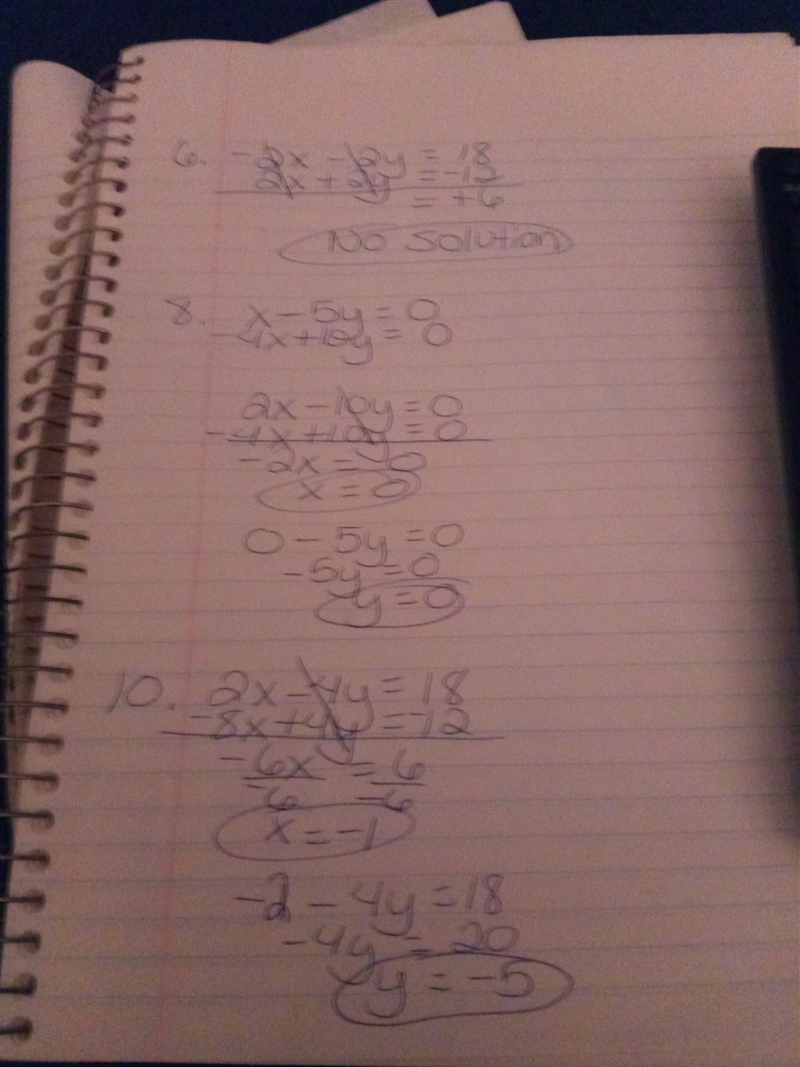 6. -2x - 2y = 18
2x + 2y = -12
= +6
No Solution
8. x - 5y = 0
-4x + 10y = 0
2x - 10y = 0
-4x + 10y = 0
-2x = 0
x = 0
0 - 5y = 0
-5y = 0
y = 0
10. 2x - 4y = 18
-8x + 4y = -12
-6x = 6
-6 -6
x = -1
-2 - 4y = 18
-4y = 20
y = -5